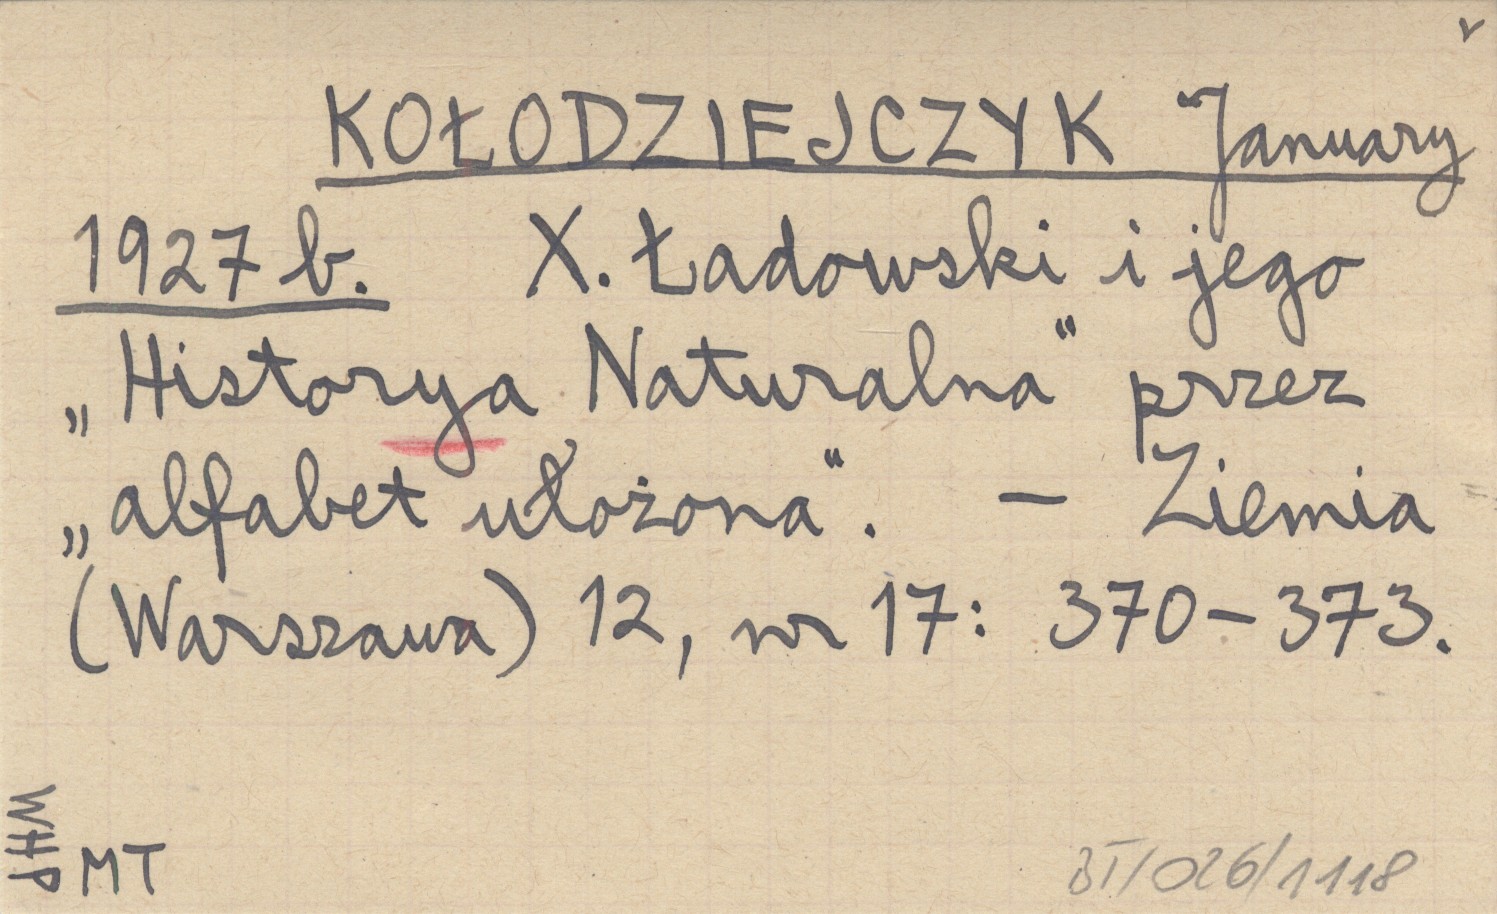 KOŁODZIEJCZYK January
1927 b. X. Ładowski i jego
„Historya Naturalna“ przez
„alfabet ułożona“. — Ziemia
(Warszawa) 12, nr 17: 370–373.
WHP
MT
BT/026/1118